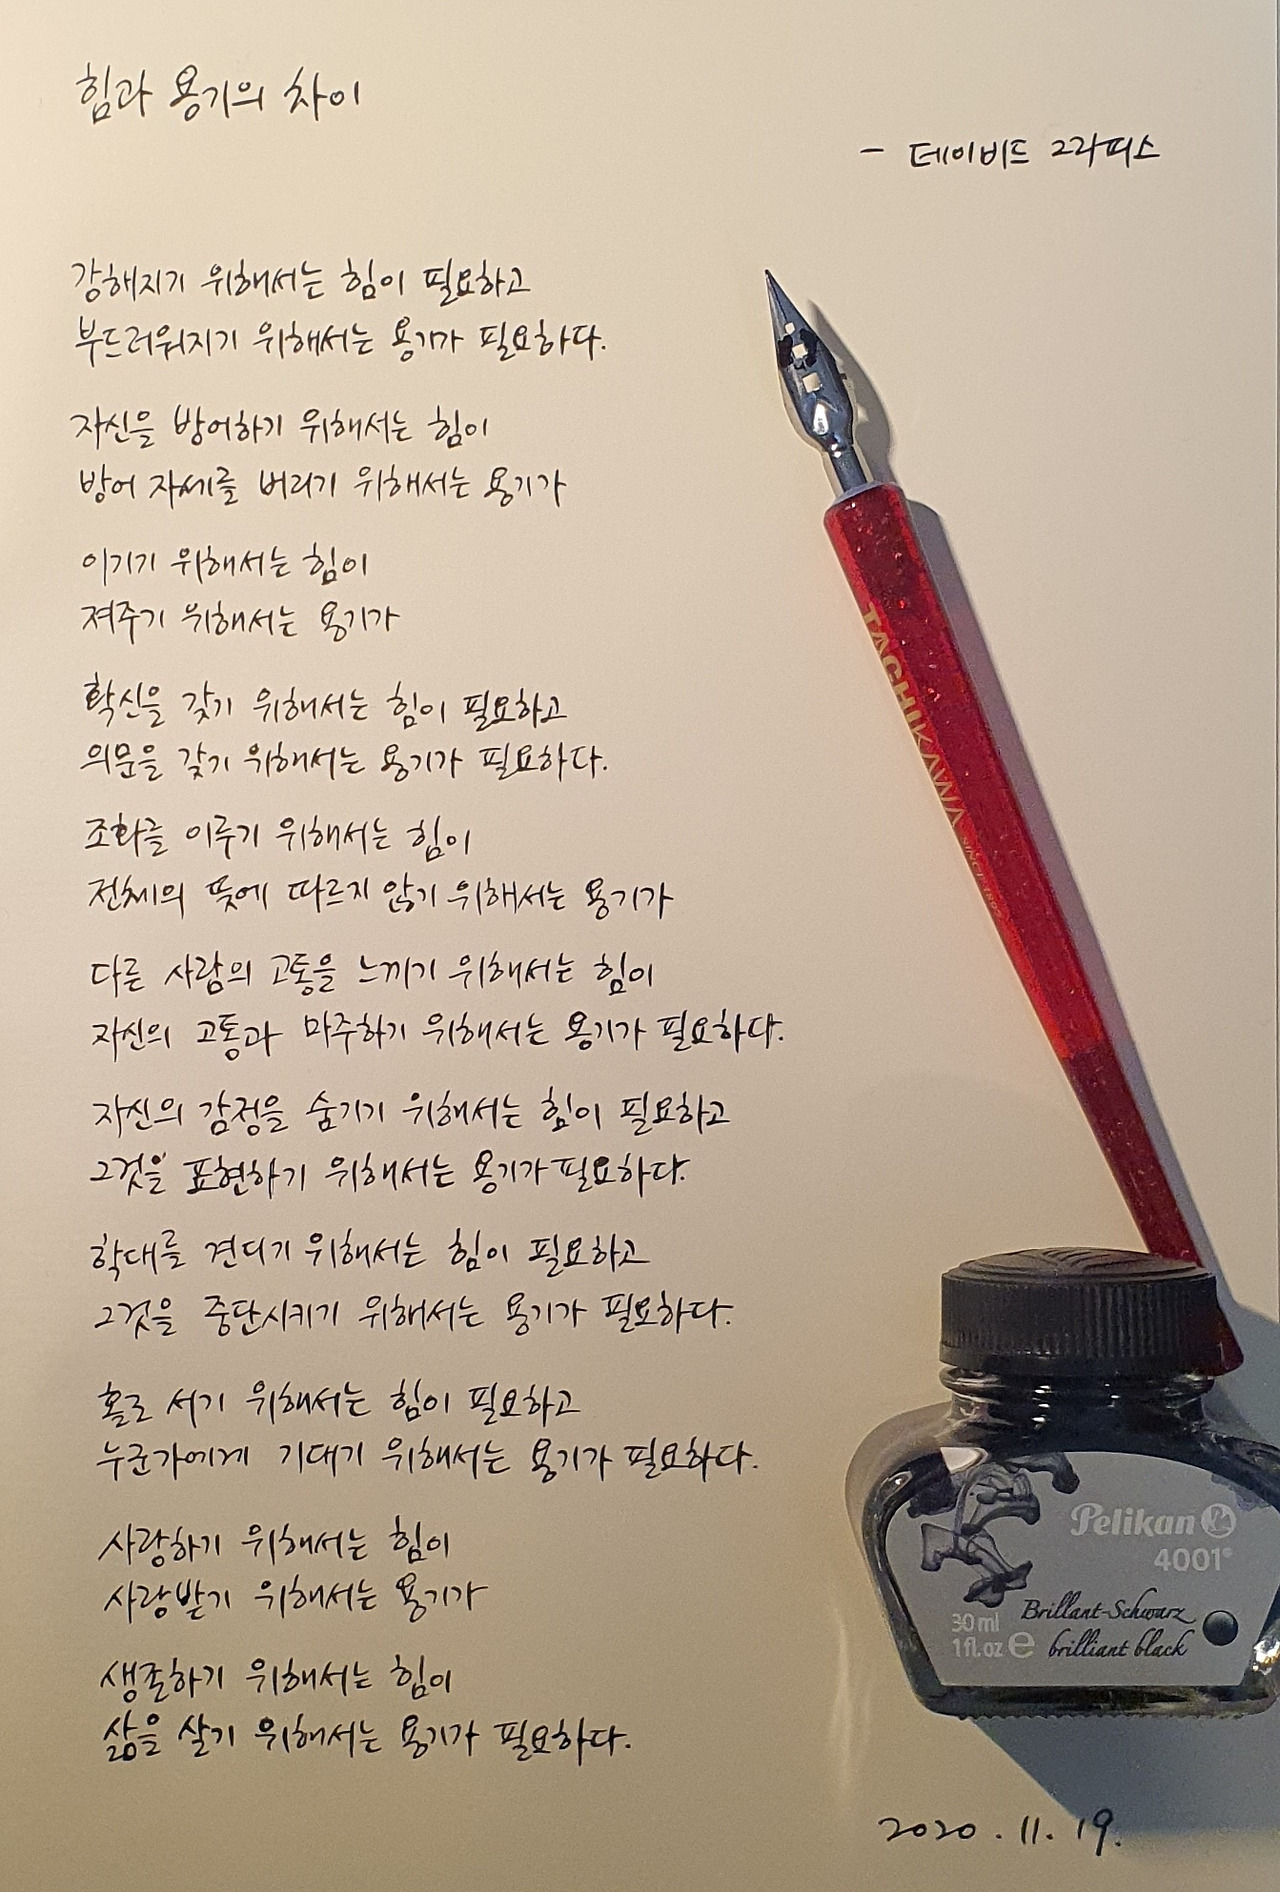 힘과 용기의 차이
- 데이비드 그리피스
강해지기 위해서는 힘이 필요하고
부드러워지기 위해서는 용기가 필요하다.
자신을 방어하기 위해서는 힘이
방어 자세를 버리기 위해서는 용기가
이기기 위해서는 힘이
져주기 위해서는 용기가
확신을 갖기 위해서는 힘이 필요하고
의문을 갖기 위해서는 용기가 필요하다.
조화를 이루기 위해서는 힘이
전체의 뜻에 따르지 않기 위해서는 용기가
다른 사람의 고통을 느끼기 위해서는 힘이
자신의 고통과 마주하기 위해서는 용기가 필요하다.
자신의 감정을 숨기기 위해서는 힘이 필요하고
그것을 표현하기 위해서는 용기가 필요하다.
학대를 견디기 위해서는 힘이 필요하고
그것을 중단시키기 위해서는 용기가 필요하다.
홀로 서기 위해서는 힘이 필요하고
누군가에게 기대기 위해서는 용기가 필요하다.
사랑하기 위해서는 힘이
사랑받기 위해서는 용기가
생존하기 위해서는 힘이
삶을 살기 위해서는 용기가 필요하다.
2020.11.19.
TACHIKAWA SINCE
Pelikan
4001®
30 ml
1 fl.oz e
Brillant-Schwarz
brilliant black